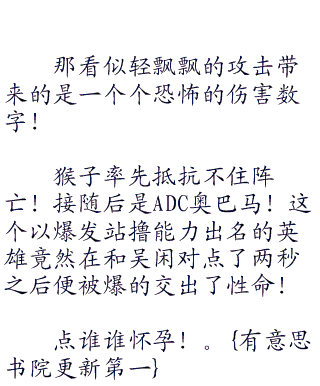 那看似轻飘飘的攻击带
来的是一个个恐怖的伤害数
字！
猴子率先抵抗不住阵
亡！接随后是ADC奥巴马！这
个以爆发站撸能力出名的英
雄竟然在和吴闲对点了两秒
之后便被爆的交出了性命！
点谁谁怀孕！。{有意思
书院更新第一}